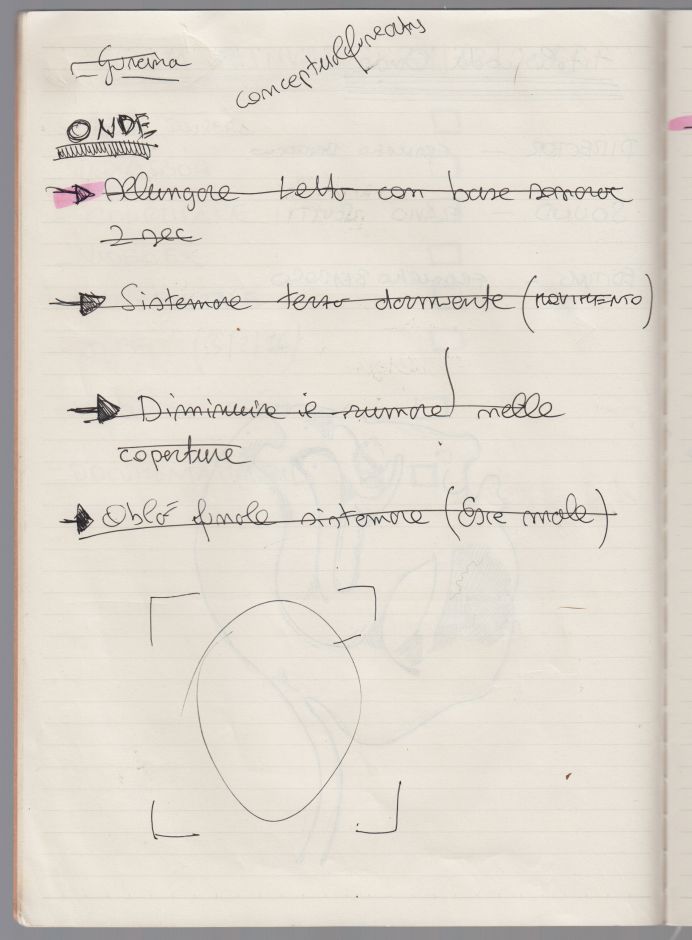 conceptualfinearts
ONDE
Allungare letto con base sonora
2 sec
Sistemare terzo dormiente (MOVIMENTO)
Diminuire il rumore nelle
coperture
Oblò finale sistemare (Esce male)